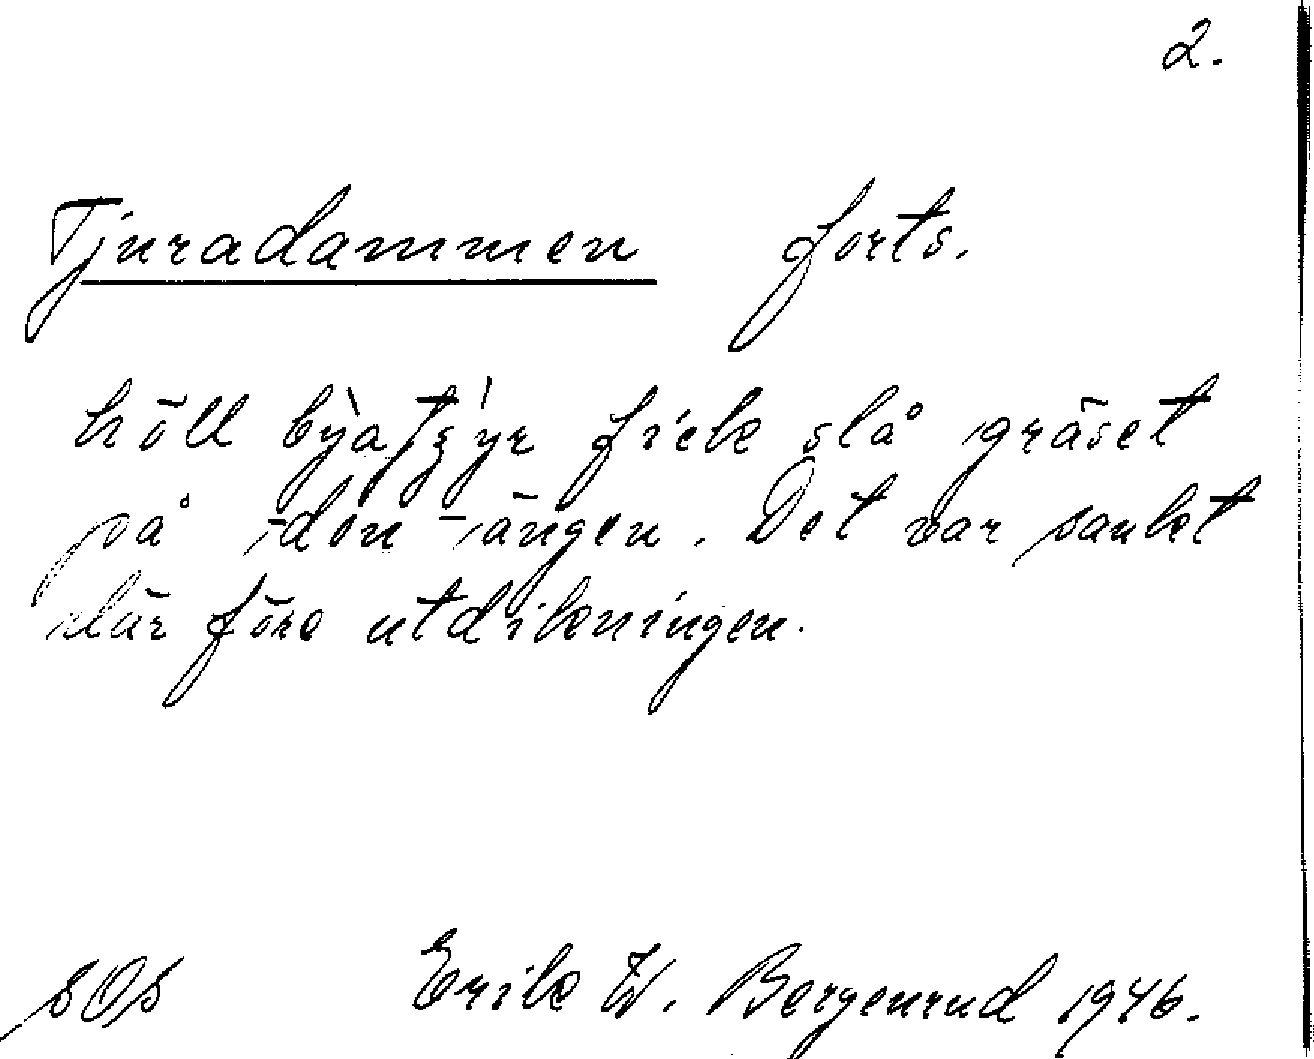 2.
Tjuradammen forts.
höll
fick slå gräset
på den ängen. Det var sankt
där före utdikningen.
Erik W. Bergenrud 1946.